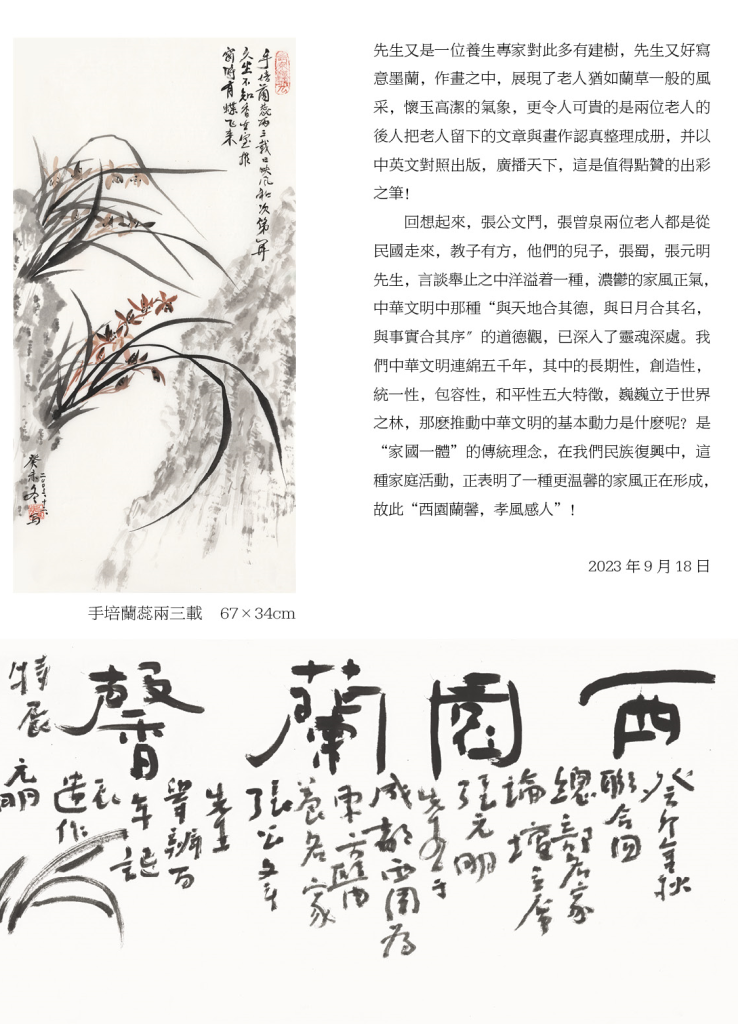 手培蘭蕊兩三載
久坐不知香在室推
窗時有蝶飞来
癸未
手培蘭蕊兩三載 67×34cm
先生又是一位養生專家對此多有建樹，先生又好寫
意墨蘭，作畫之中，展現了老人猶如蘭草一般的風
采，懷玉高潔的氣象，更令人可貴的是兩位老人的
後人把老人留下的文章與畫作認真整理成册，并以
中英文對照出版，廣播天下，這是值得點贊的出彩
之筆！
回想起來，張公文鬥，張曾泉兩位老人都是從
民國走來，教子有方，他們的兒子，張蜀，張元明
先生，言談舉止之中洋溢着一種，濃鬱的家風正氣，
中華文明中那種“與天地合其德，與日月合其名，
與事實合其序〞的道德觀，已深入了靈魂深處。我
們中華文明連綿五千年，其中的長期性，創造性，
統一性，包容性，和平性五大特徵，巍巍立于世界
之林，那麽推動中華文明的基本動力是什麽呢？是
“家國一體”的傳統理念，在我們民族復興中，這
種家庭活動，正表明了一種更温馨的家風正在形成，
故此“西園蘭馨，孝風感人”！
2023 年 9 月 18 日
西園蘭馨
癸卯年秋
聯合國
總部名家
論壇主席
張元明
先生于
成都西園為
東方醫
養名家
張公文斗
先生
百
年誕
辰
造作
特展
元明